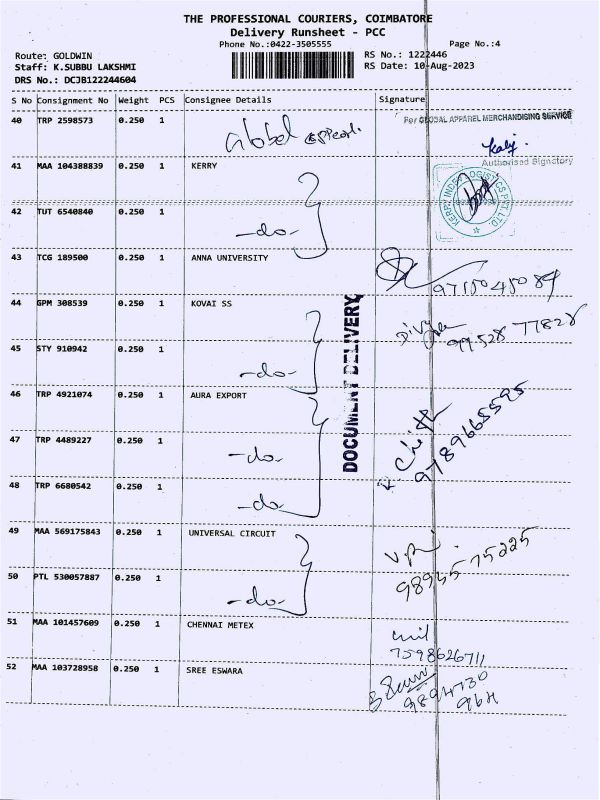 THE PROFESSIONAL COURIERS, COIMBATORE
Delivery Runsheet - PCC
Phone No.:0422-3505555
Page No.:4
Route: GOLDWIN
RS No.: 1222446
Staff: K.SUBBU LAKSHMI
RS Date: 10-Aug-2023
DRS No.: DCJB122244604
S No Consignment No Weight PCS Consignee Details Signature
40 TRP 2598573 0.250 1 Global
For GLOBAL APPAREL MERCHANDISING SERVICE
Authorised Signatory
41 MAA 104388839 0.250 1 KERRY
KERRY INDEV LOGISTICS PVT LTD
42 TUT 6540840 0.250 1 -do-
43 TCG 189500 0.250 1 ANNA UNIVERSITY
9715045089
44 GPM 308539 0.250 1 KOVAI SS
Divya
99528 77828
45 STY 910942 0.250 1 -do-
DOCUMENT DELIVERY
46 TRP 4921074 0.250 1 AURA EXPORT
9789665595
47 TRP 4489227 0.250 1 -do-
48 TRP 6680542 0.250 1 -do-
49 MAA 569175843 0.250 1 UNIVERSAL CIRCUIT
98945 75225
50 PTL 530057887 0.250 1 -do-
51 MAA 101457609 0.250 1 CHENNAI METEX
7598626711
52 MAA 103728958 0.250 1 SREE ESWARA
9894730
964